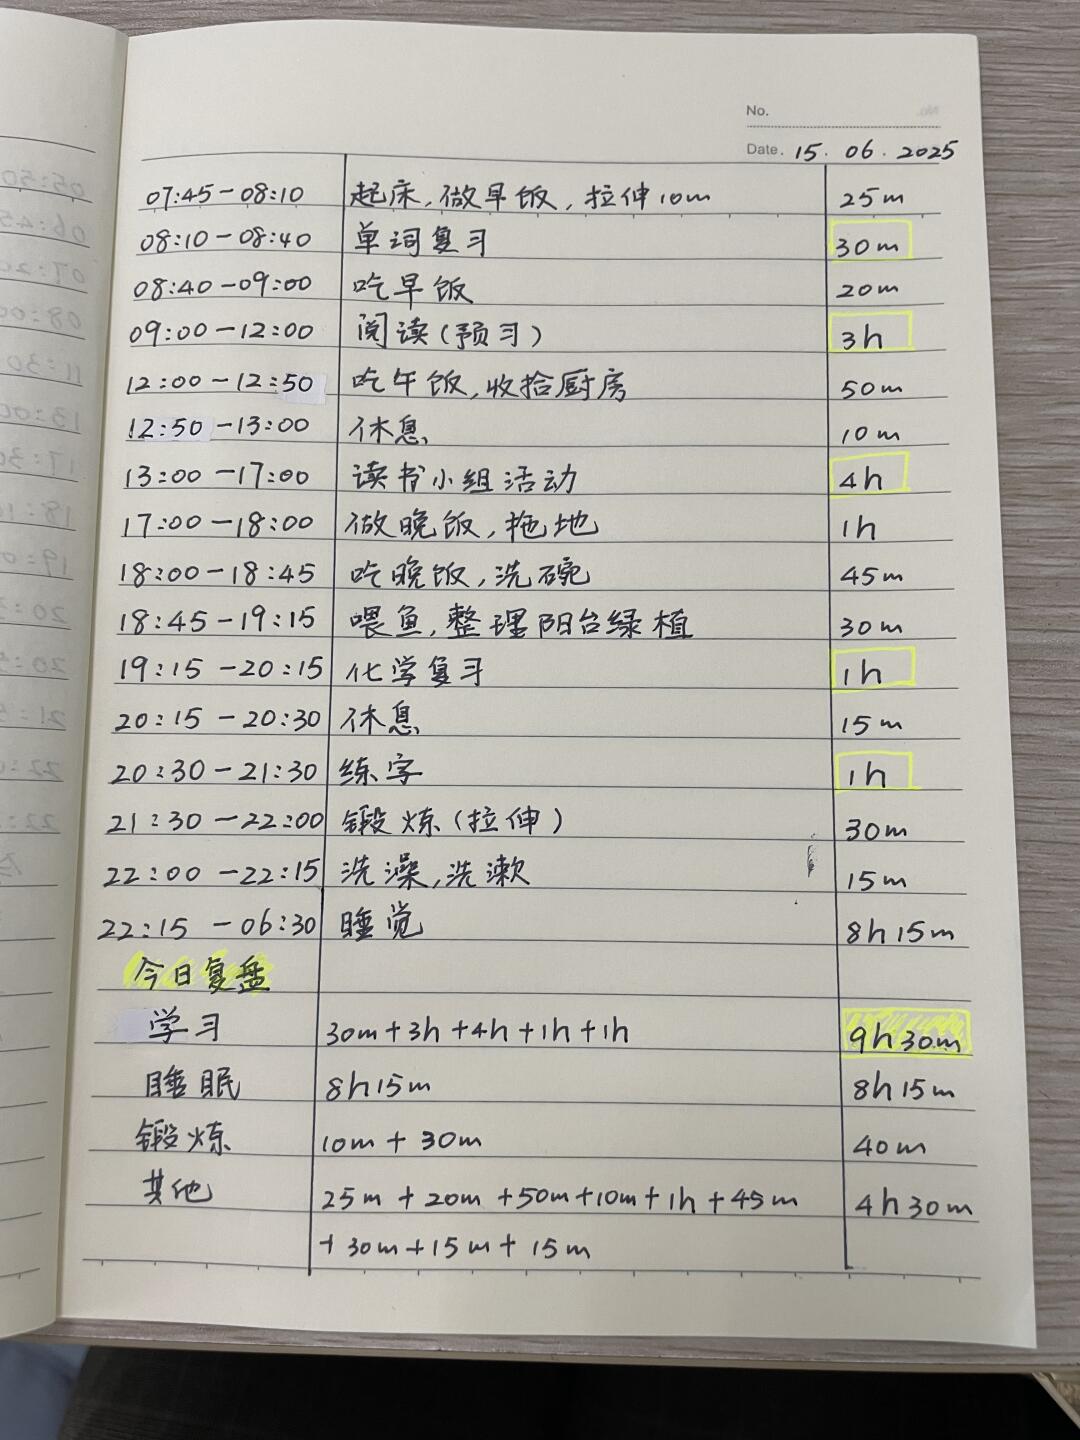 No.
Date. 15. 06. 2025
07:45-08:10 起床,做早饭,拉伸10m 25m
08:10-08:40 单词复习 30m
08:40-09:00 吃早饭 20m
09:00-12:00 阅读(预习) 3h
12:00-12:50 吃午饭,收拾厨房 50m
12:50-13:00 休息 10m
13:00-17:00 读书小组活动 4h
17:00-18:00 做晚饭,拖地 1h
18:00-18:45 吃晚饭,洗碗 45m
18:45-19:15 喂鱼,整理阳台绿植 30m
19:15-20:15 化学复习 1h
20:15-20:30 休息 15m
20:30-21:30 练字 1h
21:30-22:00 锻炼(拉伸) 30m
22:00-22:15 洗澡,洗漱 15m
22:15-06:30 睡觉 8h 15m
今日复盘
学习 30m+3h+4h+1h+1h 9h 30m
睡眠 8h15m 8h 15m
锻炼 10m + 30m 40m
其他 25m + 20m +50m+10m+1h +45m 4h 30m
+ 30m+15m+ 15m